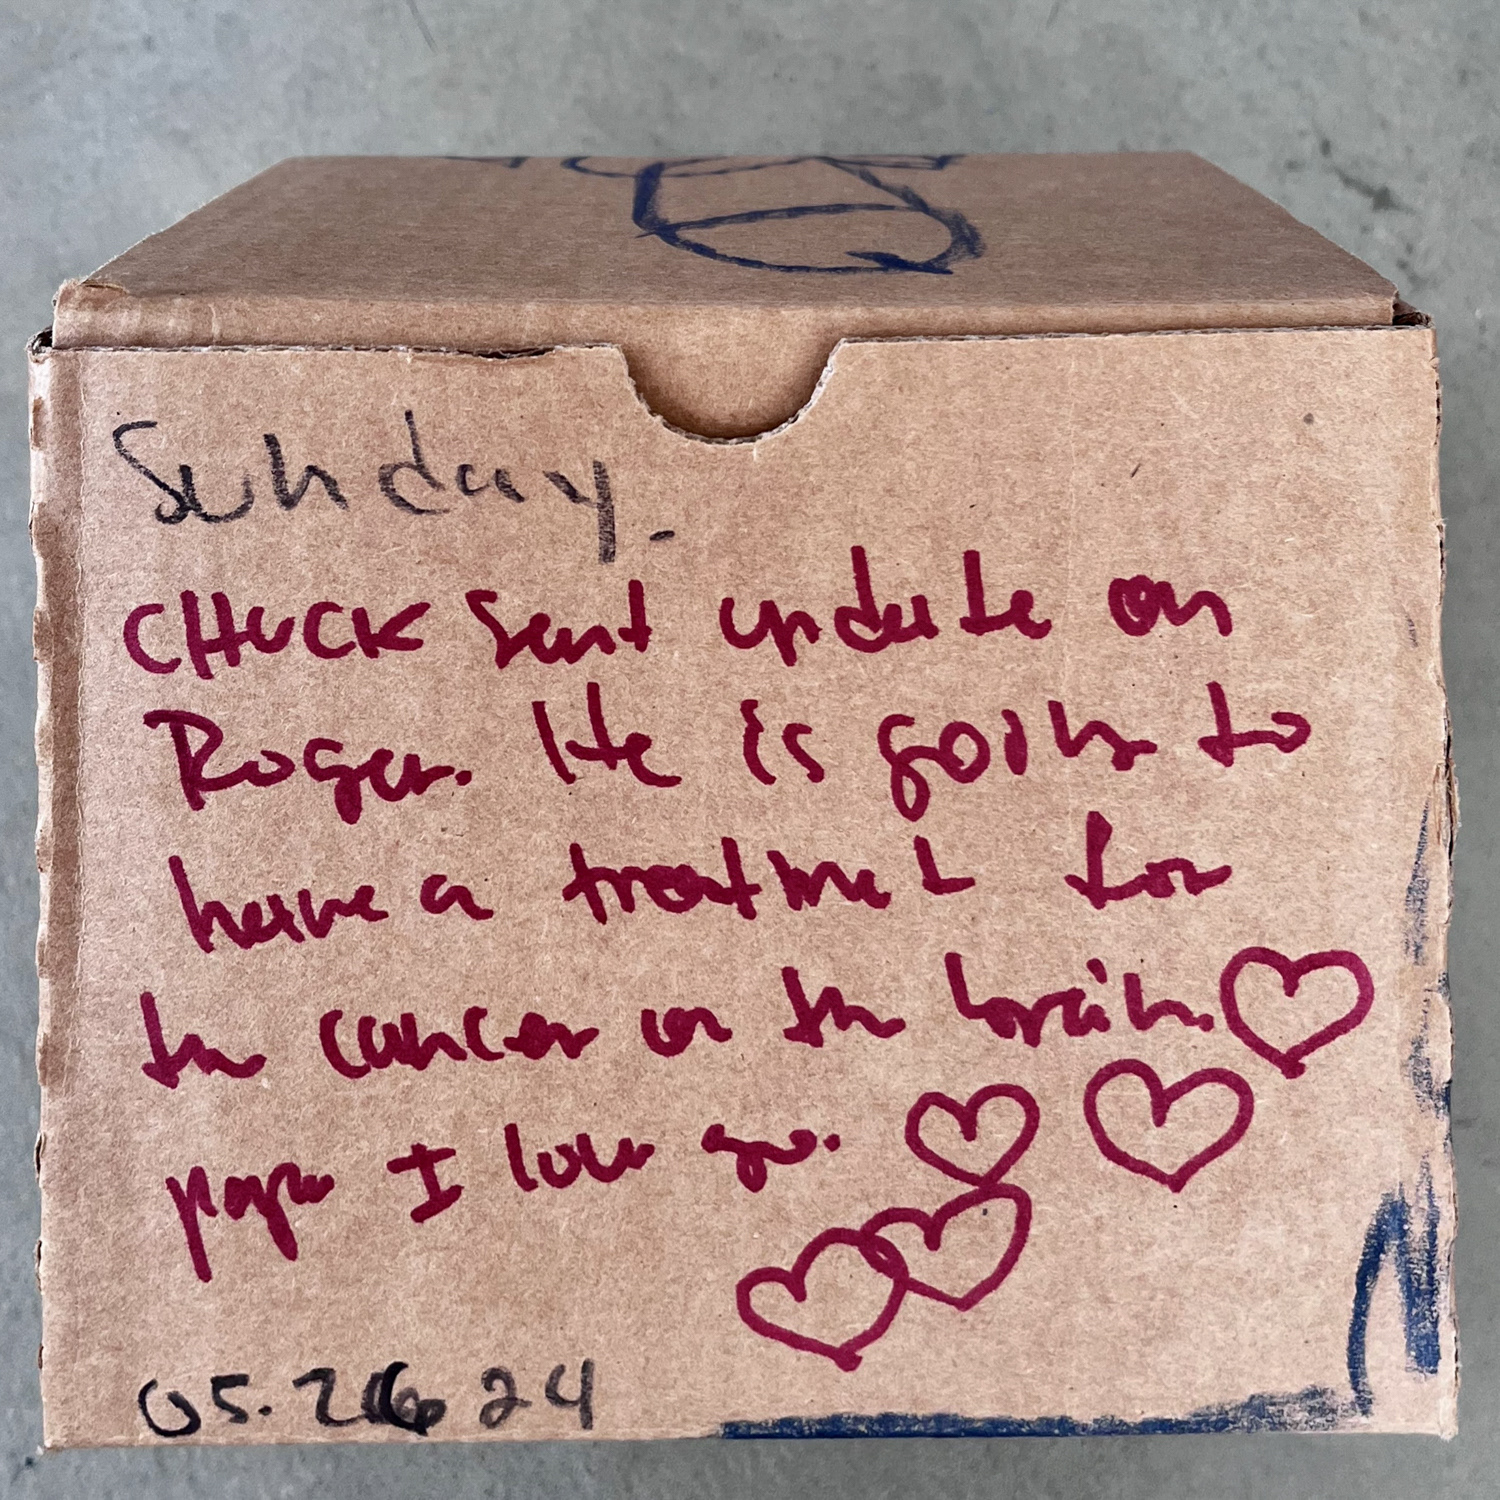 Sunday.
CHUCK Sent update on
Roger. He is goin to
have a treatment for
the cancer on the brain.
papa I love you.
05.26 24